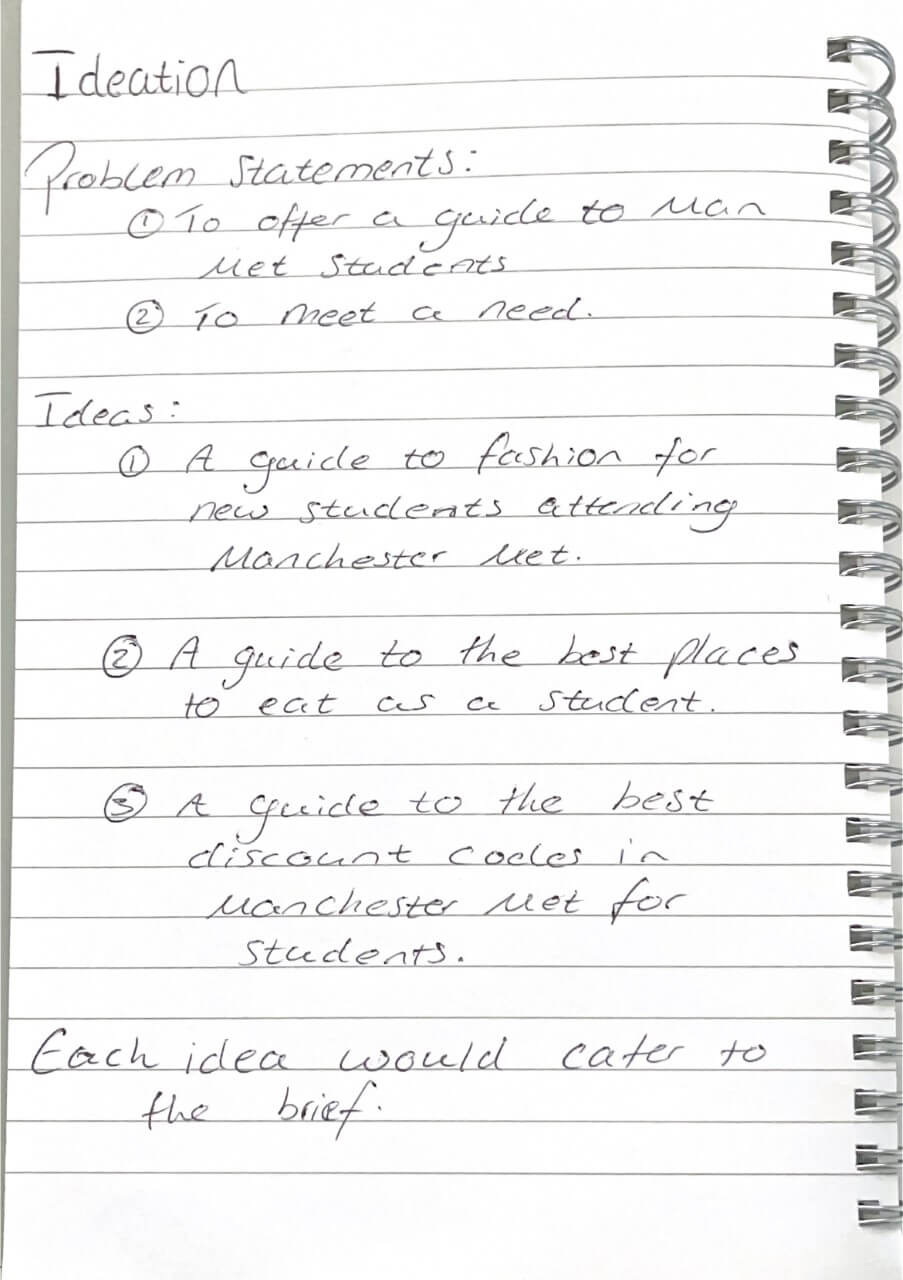 Ideation
Problem Statements:
① To offer a guide to Man
Met Students
② To meet a need.
Ideas:
① A guide to fashion for
new students attending
Manchester Met.
② A guide to the best places
to eat as a student.
③ A guide to the best
discount codes in
Manchester Met for
students.
Each idea would cater to
the brief.